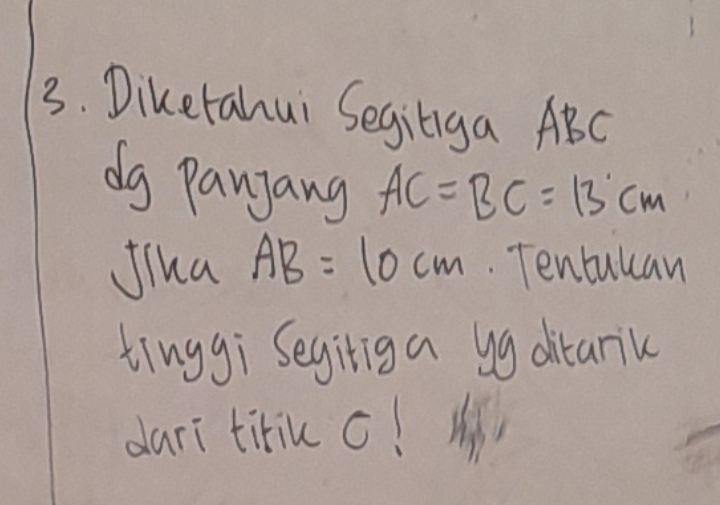 3. Diketahui Segitiga ABC
dg panjang AC = BC = 13 cm.
Jika AB = 10 cm. Tentukan
tinggi Segitiga yg ditarik
dari titik C!